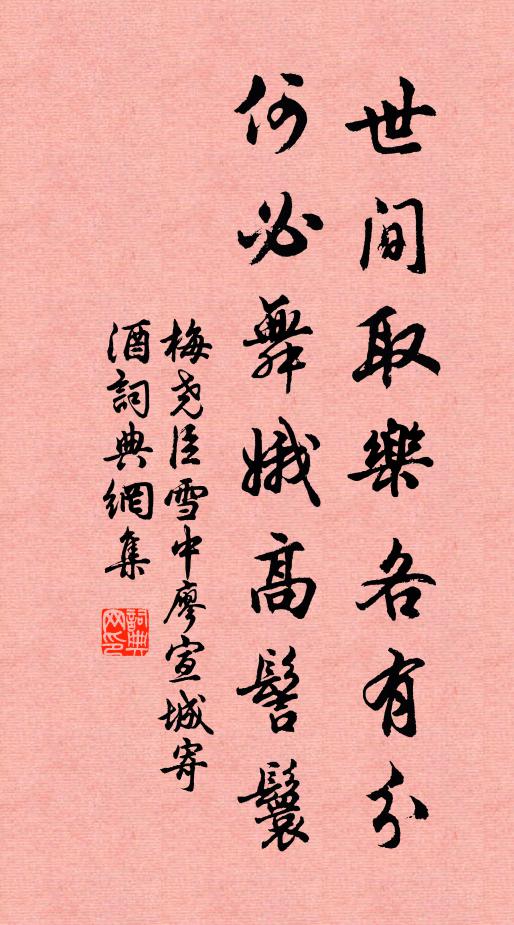 世间取樂各有分
何必舞娥高髻鬟
梅尧臣雪中廖宣城寄
酒詞典網集
詞典
网印